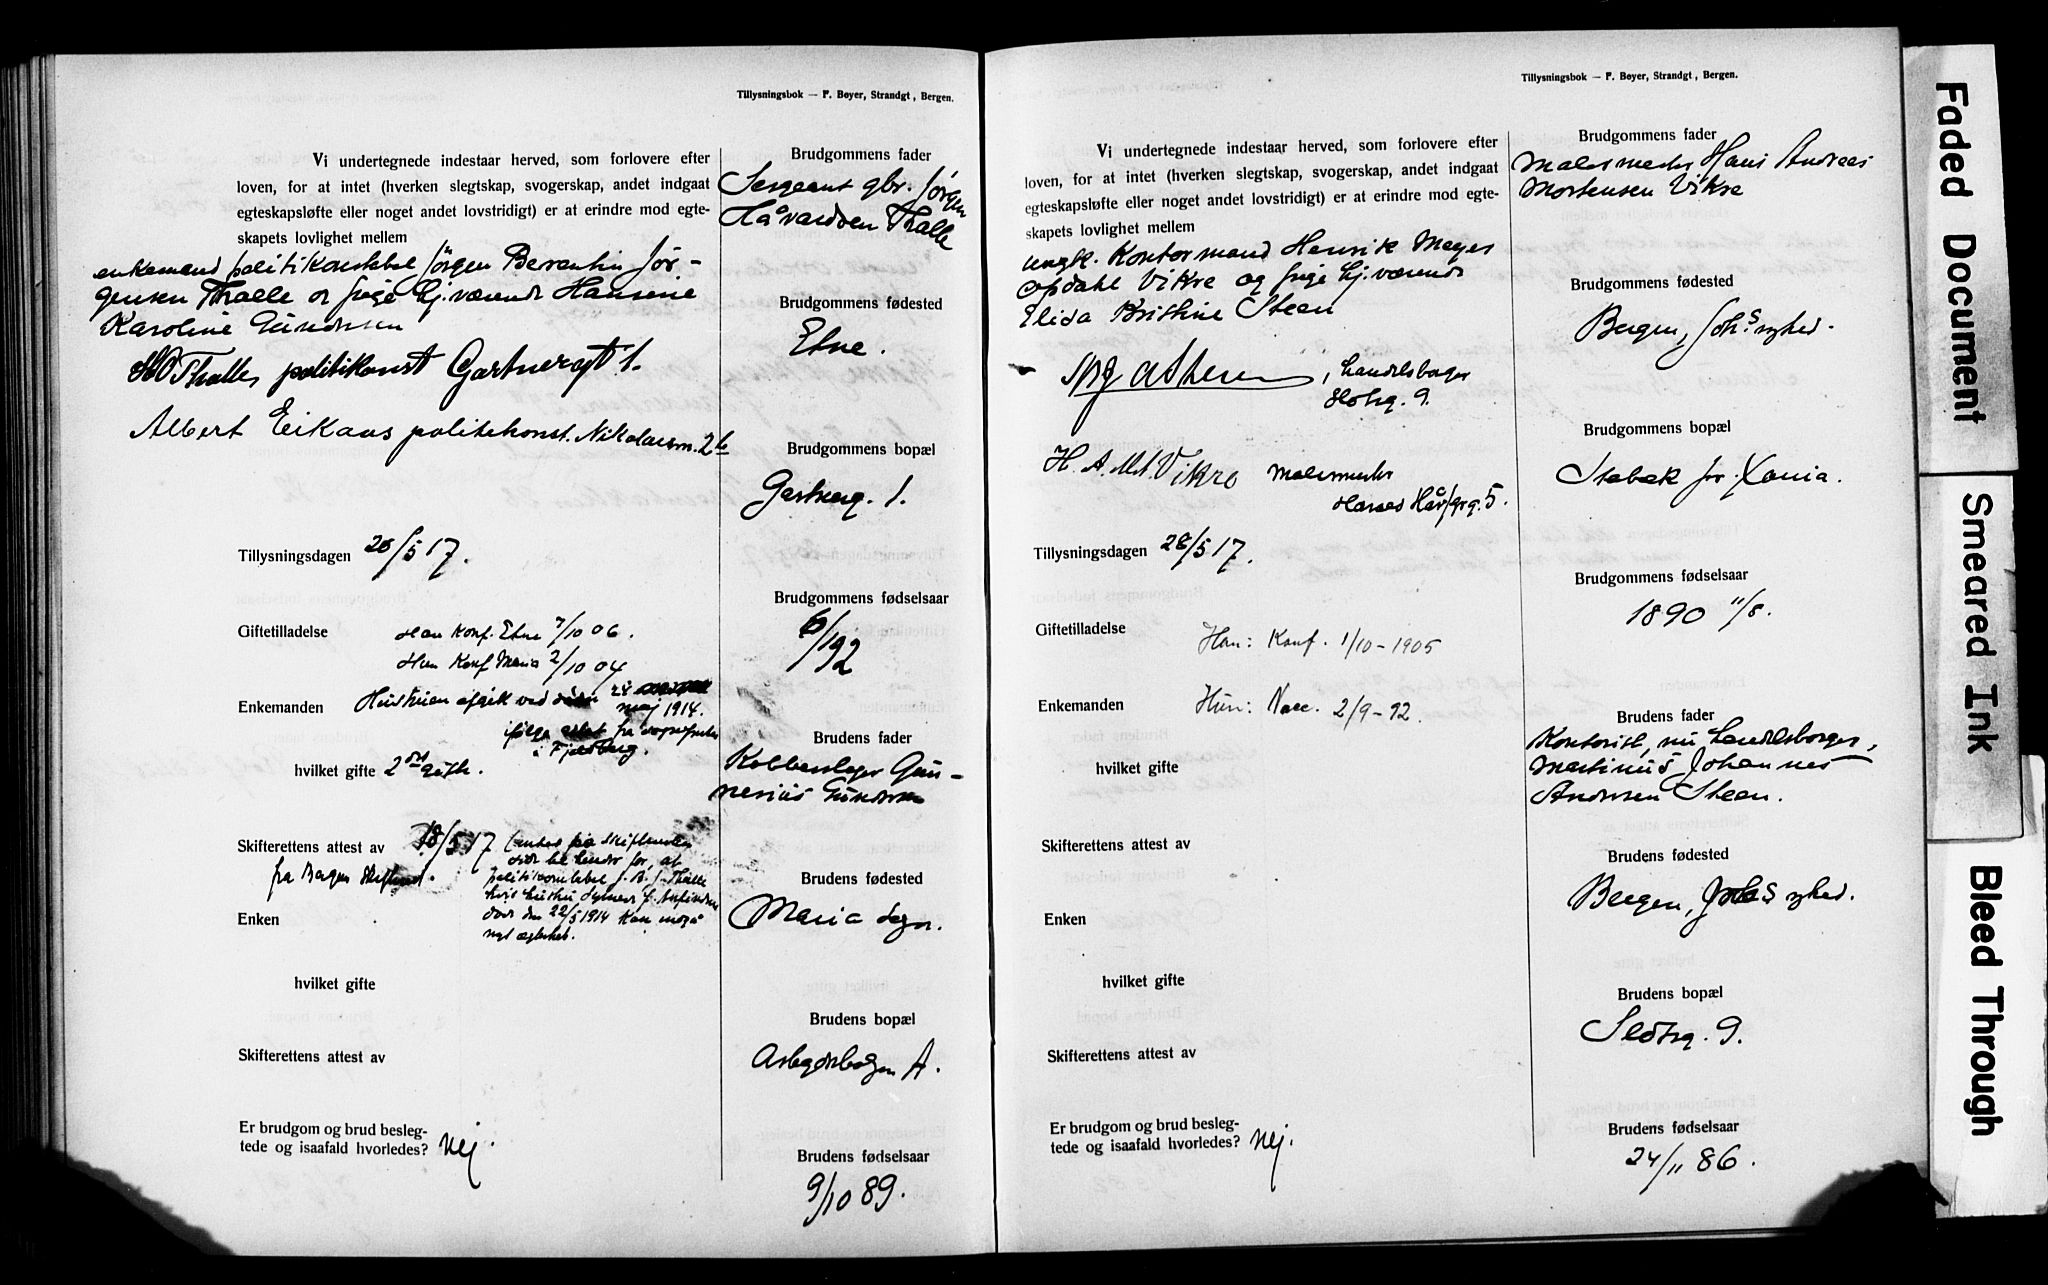 Tillysningsbok — F. Beyer, Strandgt, Bergen.
Vi undertegnede indestaar herved, som forlovere efter
loven, for at intet (hverken slegtskap, svogerskap, andet indgaat
egteskapsløfte eller noget andet lovstridigt) er at erindre mod egte-
skapets lovlighet mellem
enkemand politikonstabel Jörgen Berentin Jör-
gensen Thalle og frøge hj.værende Hansine
Karoline Gundersen
Thalle, politikonst Gartnergt 1.
Albert Eikaas politikonst. Nikolaism. 2b
Tillysningsdagen 28/5 17.
Giftetilladelse Han Konf. Etne 7/10 06.
Hun Konf Maria 2/10 04
Enkemanden Hustruen afgik ved døden 22
maj 1914.
ifølge attest fra sognepresten
i Fjelberg.
hvilket gifte 2det gifte.
Skifterettens attest av 18/5 17
fra Bergen Skifteret.
dat
politikonstabel J. B. J. Thalle
hvis hustru
död den 22/5 1914 kan indgå
nyt egteskab.
Enken
hvilket gifte
Skifterettens attest av
Er brudgom og brud besleg-
tede og isaafald hvorledes? Nej.
Brudgommens fader
Sergeant gbr. Jörgen
Håvardsen Thalle
Brudgommens fødested
Etne.
Brudgommens bopæl
Gartnerg. 1.
Brudgommens fødselsaar
6/1 92
Brudens fader
Kobberslager Gun-
nerius Gundersen
Brudens fødested
Maria sogn.
Brudens bopæl
Asbjørnsens A.
Brudens fødselsaar
9/10 89.
Tillysningsbok — F. Beyer, Strandgt, Bergen.
Vi undertegnede indestaar herved, som forlovere efter
loven, for at intet (hverken slegtskap, svogerskap, andet indgaat
egteskapsløfte eller noget andet lovstridigt) er at erindre mod egte-
skapets lovlighet mellem
ungk. Kontormand Henrik Meyer
Opdahl Vikre og frøge hj.værende
Elida Kristine Steen
Steen, Handelsborger
9.
H. A. M. Vikre Malermester
5.
Tillysningsdagen 28/5 17.
Giftetilladelse Han: Konf. 1/10 - 1905
Enkemanden Hun: Vacc. 2/9 - 92.
hvilket gifte
Skifterettens attest av
Enken
hvilket gifte
Skifterettens attest av
Er brudgom og brud besleg-
tede og isaafald hvorledes? Nej.
Brudgommens fader
Malermester Hans Andreas
Mortensen Vikre
Brudgommens fødested
Bergen, Johs kyhed.
Brudgommens bopæl
Stabæk for Xania.
Brudgommens fødselsaar
1890 11/8.
Brudens fader
Kontorist, nu Handelsborger,
Martinus Johannes
Andersen Steen.
Brudens fødested
Bergen, Johs kyhed.
Brudens bopæl
9.
Brudens fødselsaar
24/11 86.
Faded Document
Smeared Ink
Bleed Through